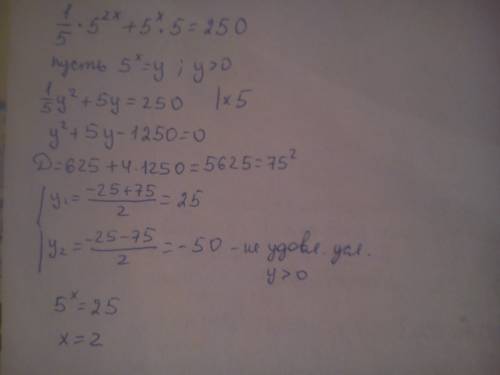 1/5 · 5^2x + 5^x · 5 = 250
пусть 5^x = y ; y > 0
1/5 y² + 5y = 250 | × 5
y² + 5y - 1250 = 0
D = 625 + 4 · 1250 = 5625 = 75²
{ y₁ = (-25+75)/2 = 25
y₂ = (-25-75)/2 = -50 - не удовл. усл.
y > 0
5^x = 25
x = 2